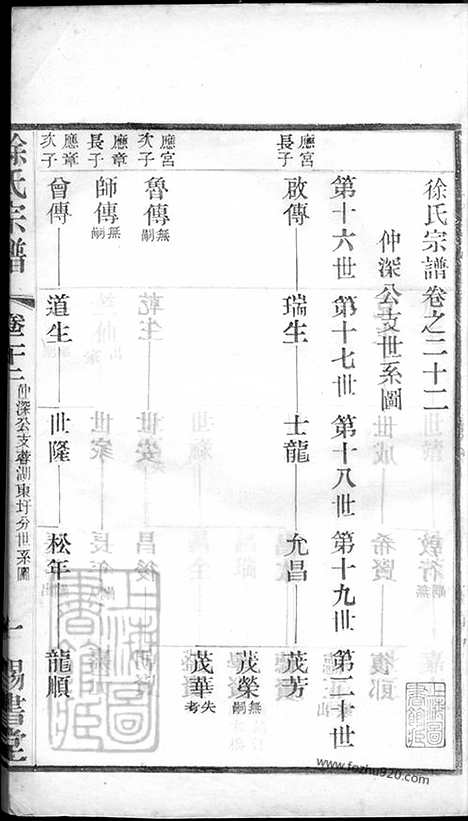 徐氏宗譜卷之二十二
仲深公支世系圖
第十六世 第十七世 第十八世 第十九世 第二十世
應宮長子 啟傳 瑞生 士龍 允昌 茂芳
茂榮 無嗣
茂華 失考
應宮次子 魯傳 無嗣
應章長子 師傳 無嗣
應章次子 曾傳 道生 世隆 松年 龍順
徐氏宗譜 卷二十二 仲深公支 湖東圩分世系圖 一 錫書堂
上海圖書館藏
上海圖書館藏
www.fozhu920.com